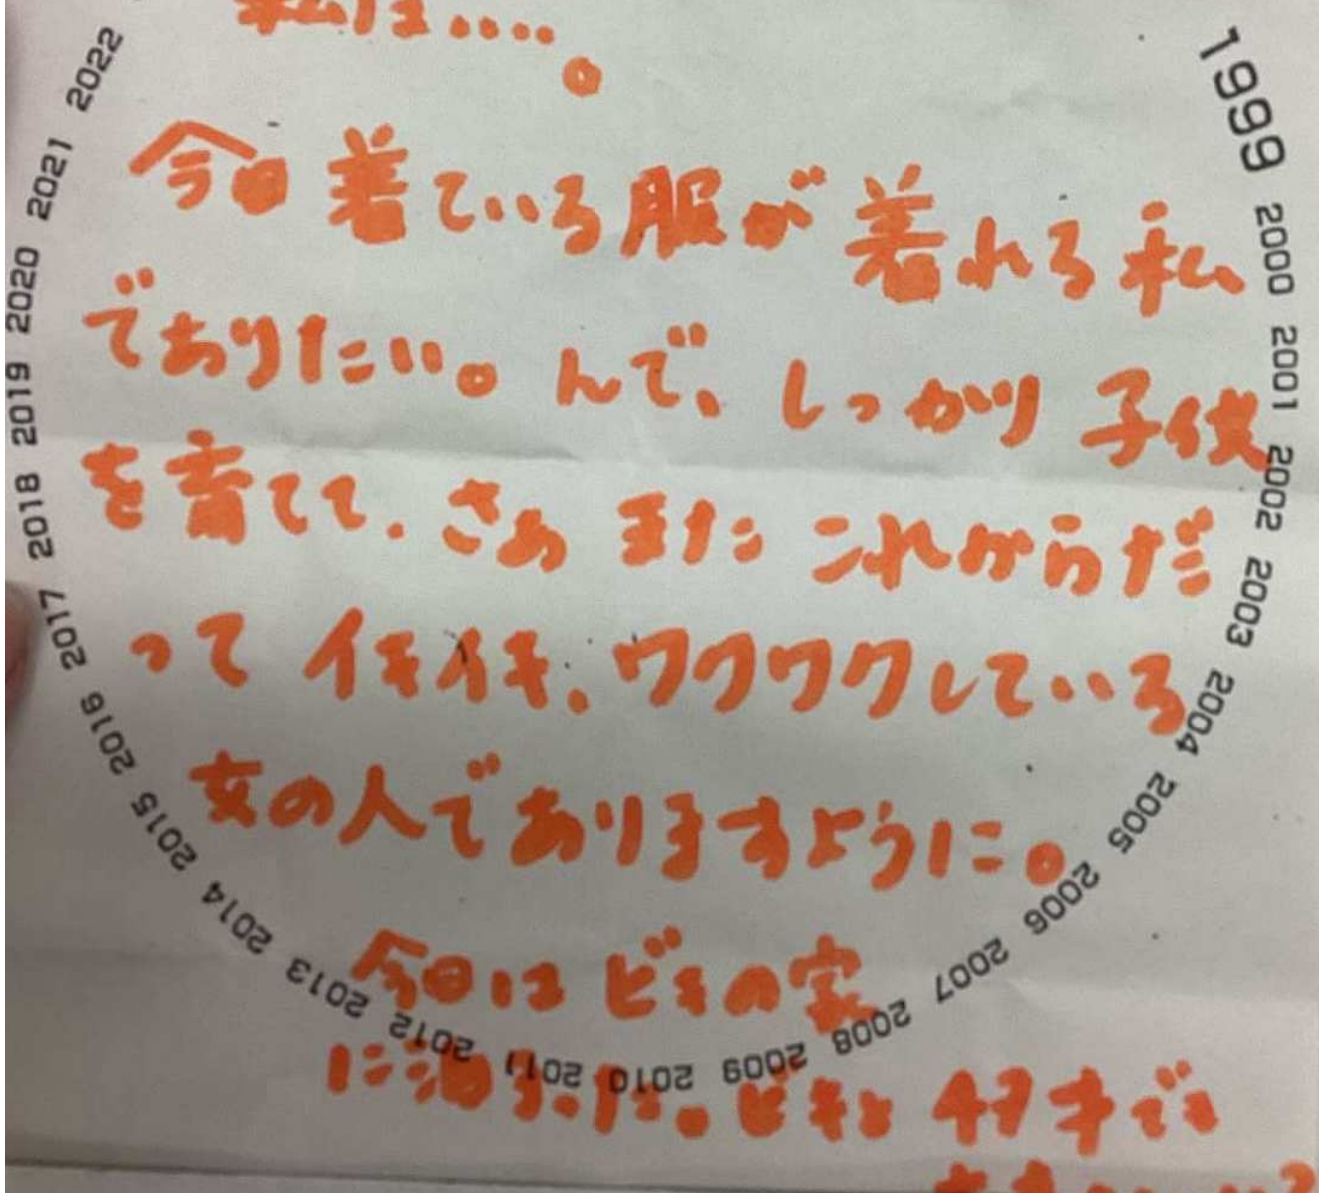 私は.....。
今日着ている服が着れる私
でありたい。んで、しっかり子供
を育てて、さあまたこれからだ
って イキイキ、ワクワクしている
女の人でありますように。
今日はビキの家
に泊
1999 2000 2001 2002 2003 2004 2005 2006 2007 2008 2009 2010 2011 2012 2013 2014 2015 2016 2017 2018 2019 2020 2021 2022